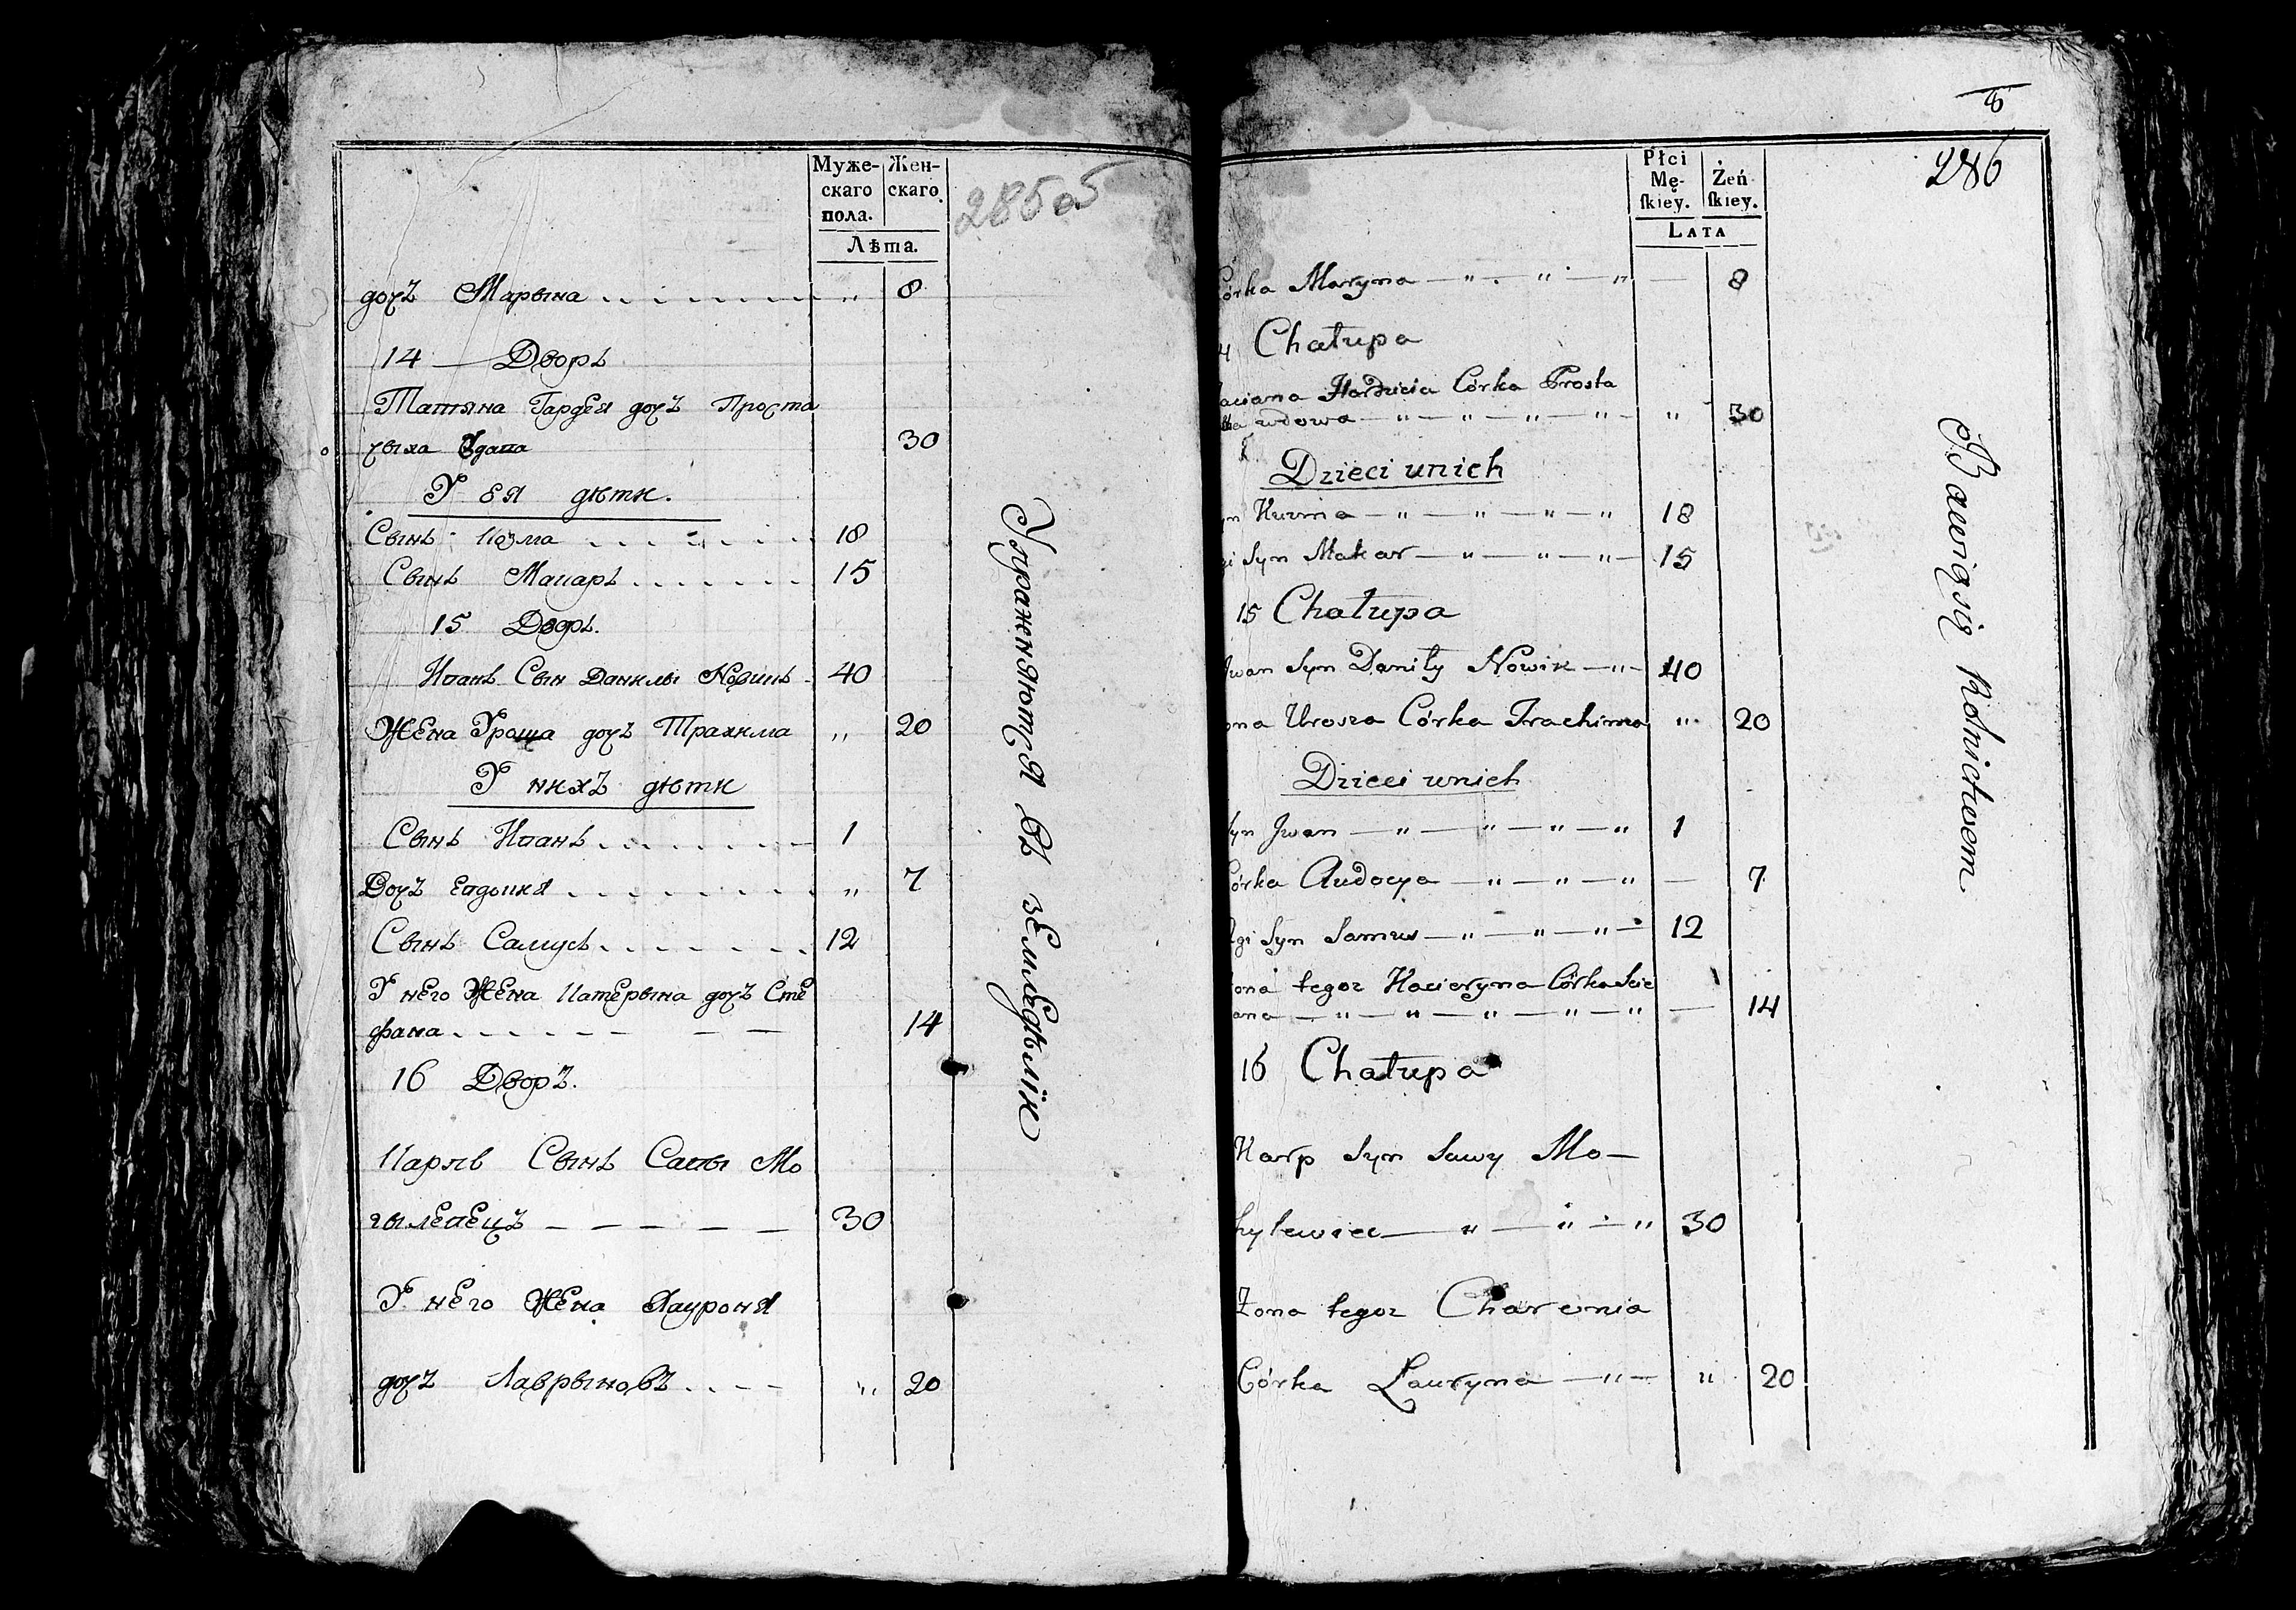 Муже-
скаго
пола.
Жен-
скаго.
Лѣта.
285 об
дочъ Марына 8
14 — Дворъ
Татяна Гардея дочъ Проста
чыха Вдава 30
У ея дѣти.
Сынъ Козма 18
Сынъ Макаръ 15
15 Дворъ.
Иванъ Сын Данилы Новикъ 40
Жена Уроша дочъ Трахима „ 20
У нихъ дѣти
Сынъ Иванъ 1
Дочъ Евдокия „ 7
Сынъ Самусь 12
У него Жена Катерына дочъ Сте
фана 14
16 Дворъ.
Карпъ Сынъ Савы Мо
гылевецъ 30
У него Жена Хавроня
дочъ Лаврыновъ „ 20
Упражняются въ земледѣліи
8
286
Płci
Mę-
ſkiey.
Żeń-
ſkiey.
LATA
Córka Maryna — „ — „ — „ — 8
Chałupa
Hardzieia Córka Prosta
wdowa — „ — „ — „ — „ „ 30
Dzieci unich
Kuzma — „ — „ — „ — „ 18
Syn Makar — „ — „ — „ — 15
15 Chałupa
Iwan Syn Daniły Nowik — „ — 40
Żona Urosza Córka Trachima „ 20
Dzieci unich
Syn Jwan — „ — „ — „ — „ 1
Córka Audocya — „ — „ — „ — 7
Syn Samus — „ — „ — „ — 12
Żona tegoz Kacieryna Córka Scie
ana — „ — „ — „ — „ — „ — 14
16 Chałupa
Karp Syn Sawy Mo-
hylewiec — „ — „ — „ 30
Żona tegoz Chawronia
Córka Lauryna — „ — „ 20
Bawią się Rolnictwem